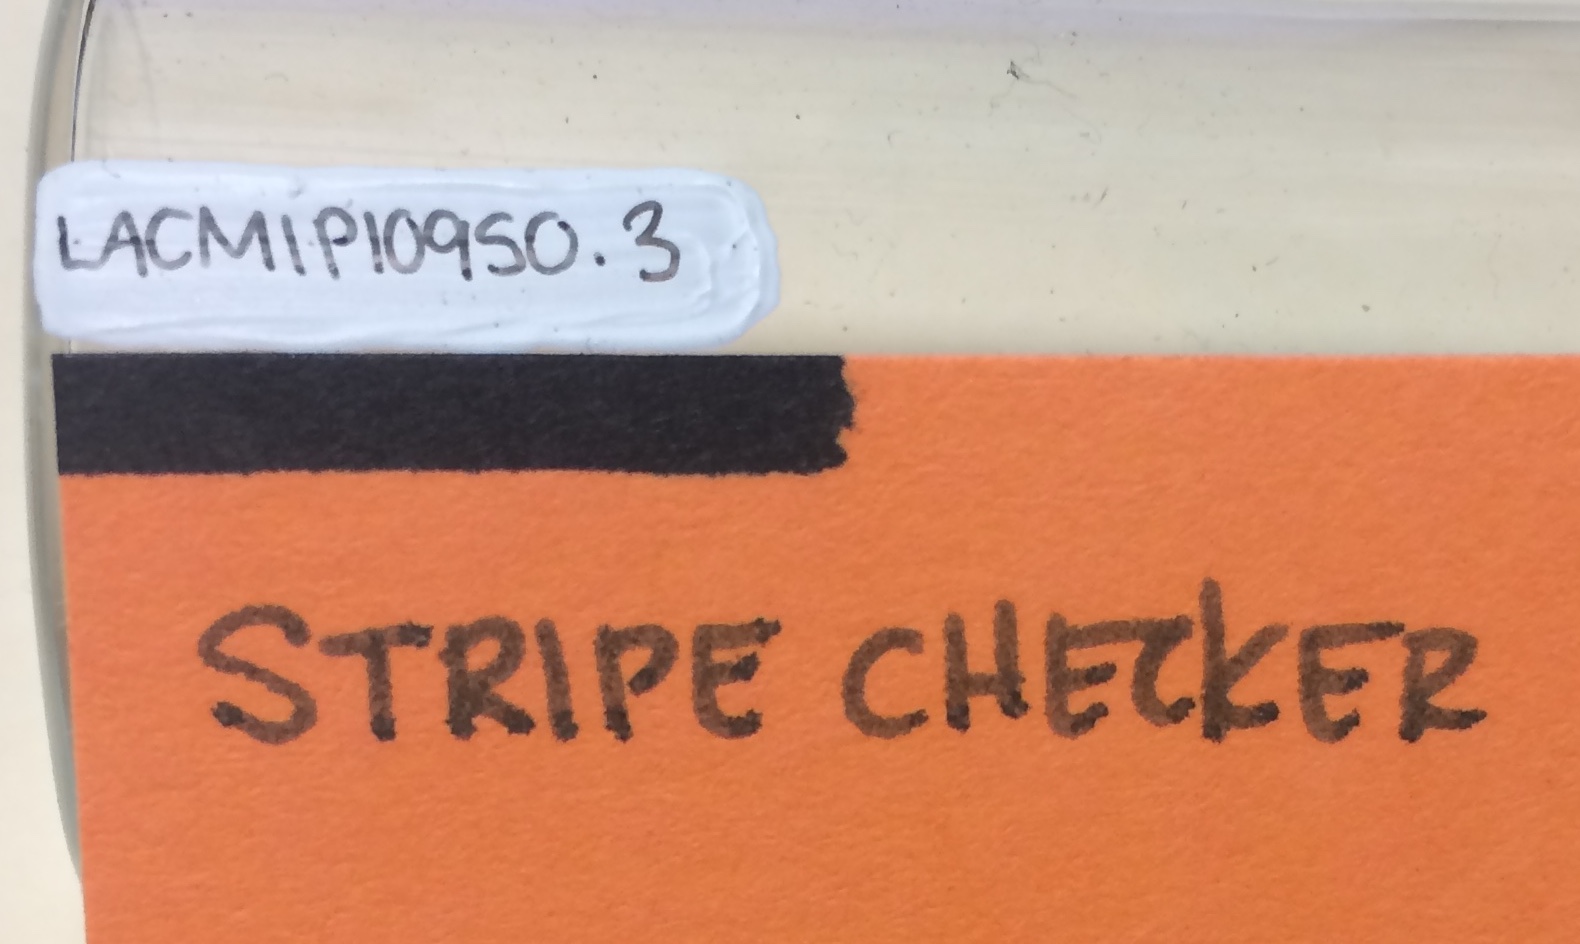 LACMIP10950.3
STRIPE CHECKER